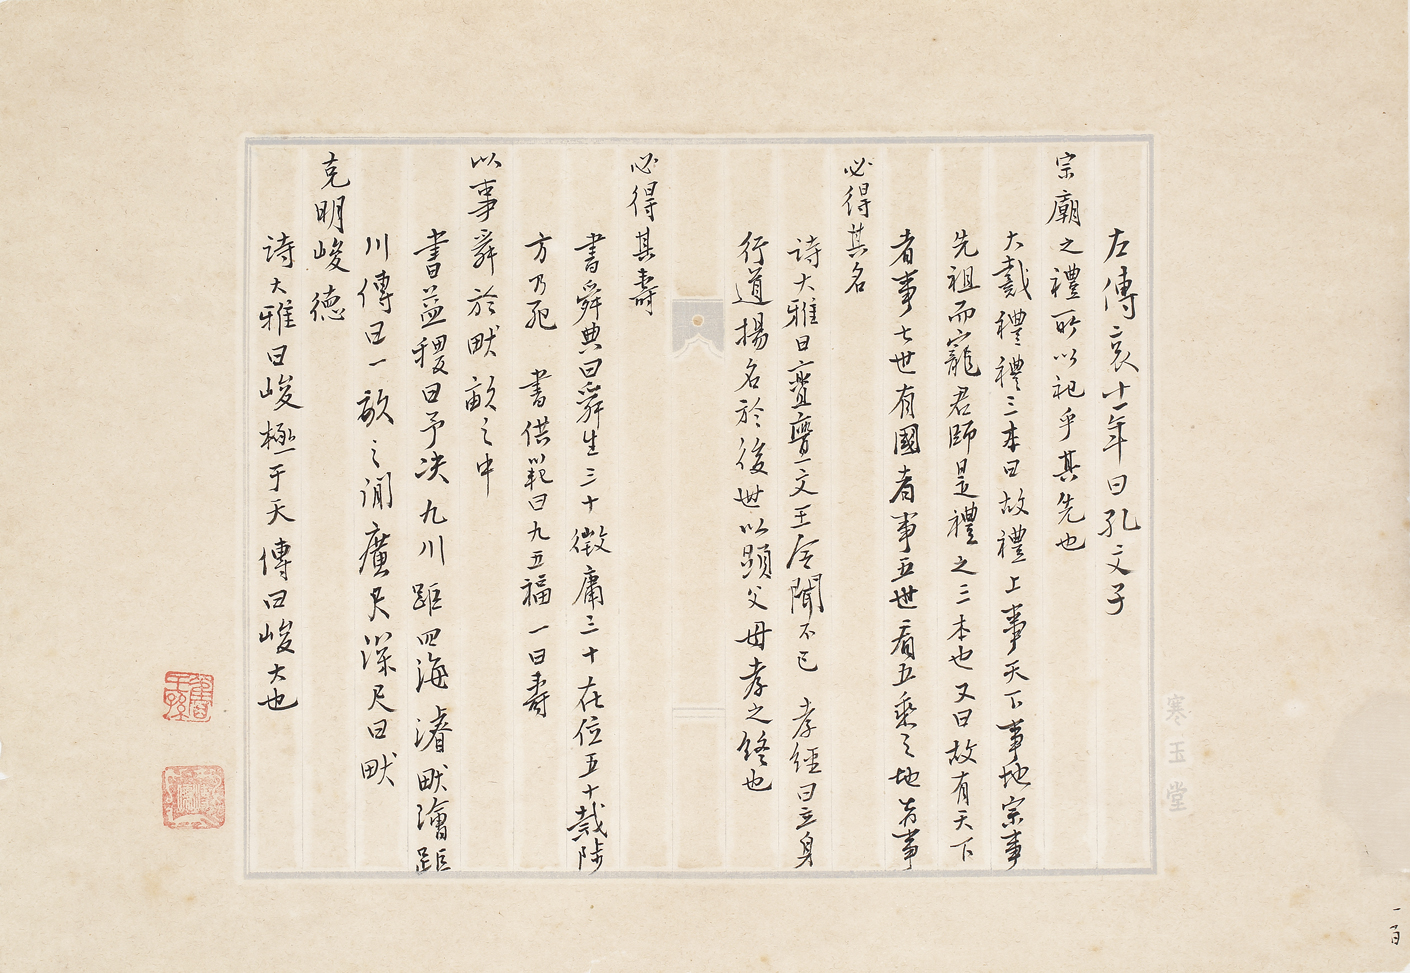 左傳哀十一年曰孔文子
宗廟之禮所以祀乎其先也
大戴禮禮三本曰故禮上事天下事地宗事
先祖而寵君師是禮之三本也又曰故有天下
者事七世有國者事五世有五乘之地者事
必得其名
詩大雅曰亹亹文王令聞不已 孝經曰立身
行道揚名於後世以顯父母孝之終也
必得其壽
書舜典曰舜生三十徵庸三十在位五十載陟
方乃死 書洪範曰九五福一曰壽
以事舜於畎畝之中
書益稷曰予決九川距四海濬畎澮距
川傳曰一畝之間廣尺深尺曰畎
克明峻德
詩大雅曰峻極于天傳曰峻大也
寒玉堂
舊王孫
一百